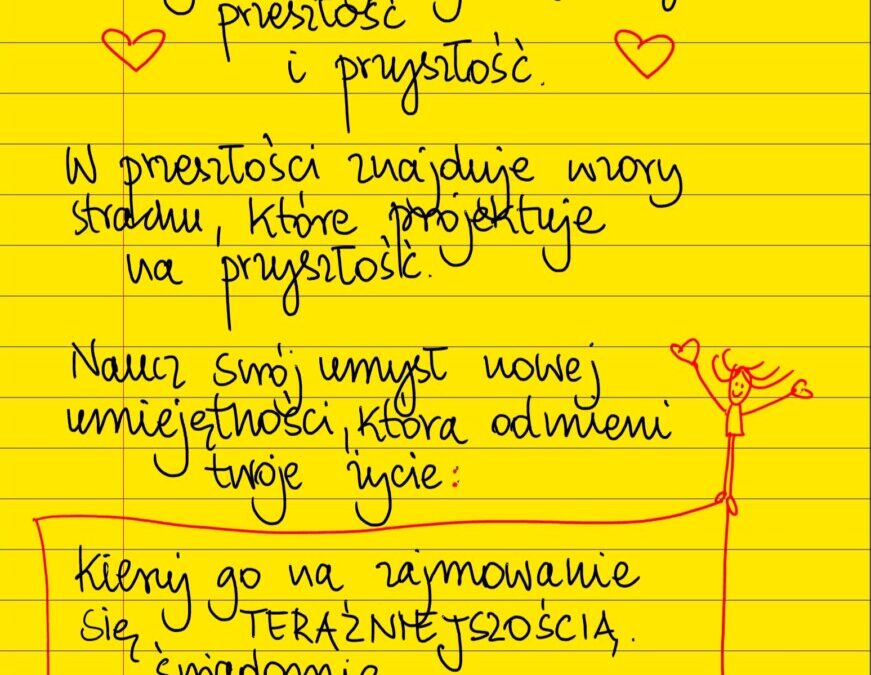 przeszłość
i przyszłość.
W przeszłości znajduje wzory
strachu, które projektuje
na przyszłość.
Naucz swój umysł nowej
umiejętności, która odmieni
twoje życie:
Kieruj go na zajmowanie
się TERAŹNIEJSZOŚCIĄ.
świadomie